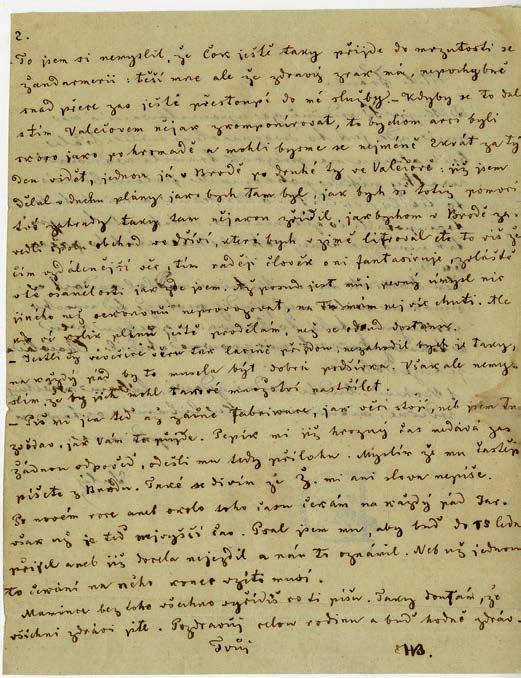 2.
To jsem si nemyslil, že Čok ještě taky přijde do mrzutosti se
žandarmerii: těší mne ale že zdravý zrak má, nepochybně
snad přece zas ještě přestoupí do mé služby. – Kdyby se to dalo
s tím Valečovem nějak zkomponírovat, to bychom arci byli
skoro jako pohromadě a mohli bysme se nejméně 2krát za tý
den vidět, jednou já v Brodě po druhé ty ve Valečově: již jsem
dělal v duchu plány jak bych tam byl, jak bych si totiž pomocí
zahrady taky tam nějakou zřídil, jak bychom v Brodě za-
vedli obchod se dřívím, které bych v zimě etc to víš že
čím vzdálenější věc, tím raději člověk oni fantasiruje, zvláště
v té osamělosti jak zde jsem. Až posud jest můj pevný úmysl nic
jiného než oeconomii neprovozovat, na mám nejvíc chuti. Ale
kolik plánů ještě prodělám, než se odsud dostanu.
– Jestli už veverice věru tak lacině přijdou, nezahodil bych je taky,
na každý pád by to musela být dobrá podšívka. Však ale nemy-
slím že by jich mohl takové množství nastřílet.
– Piš mi jen teď až začne fabricírovat, jak věci stojí, neb jsem
zvědav, jak Vám to půjde. Pepík mi již hrozný čas nedává zas
žádnou odpověď, odešli mu tedy přílohu. Myslím že mu častěji
píšete z Brodu. Také se divím že Ž. mi ani slova nepíše.
Po novém roce aneb okolo toho času čekám na každý pád
však už je teď nejvyšší čas. Psal jsem mu, aby buď do 15 ledna
přijel aneb již docela nejezdil a nám to oznámil. Neb už jednou
to čekání na něho konec vzíti musí.
Mamince bez toho všechno vyřídíš co ti píšu. Taky doufám, že
všichni zdrávi jste. Pozdravuj celou rodinu a buď hodně zdráv.
Tvůj HB.